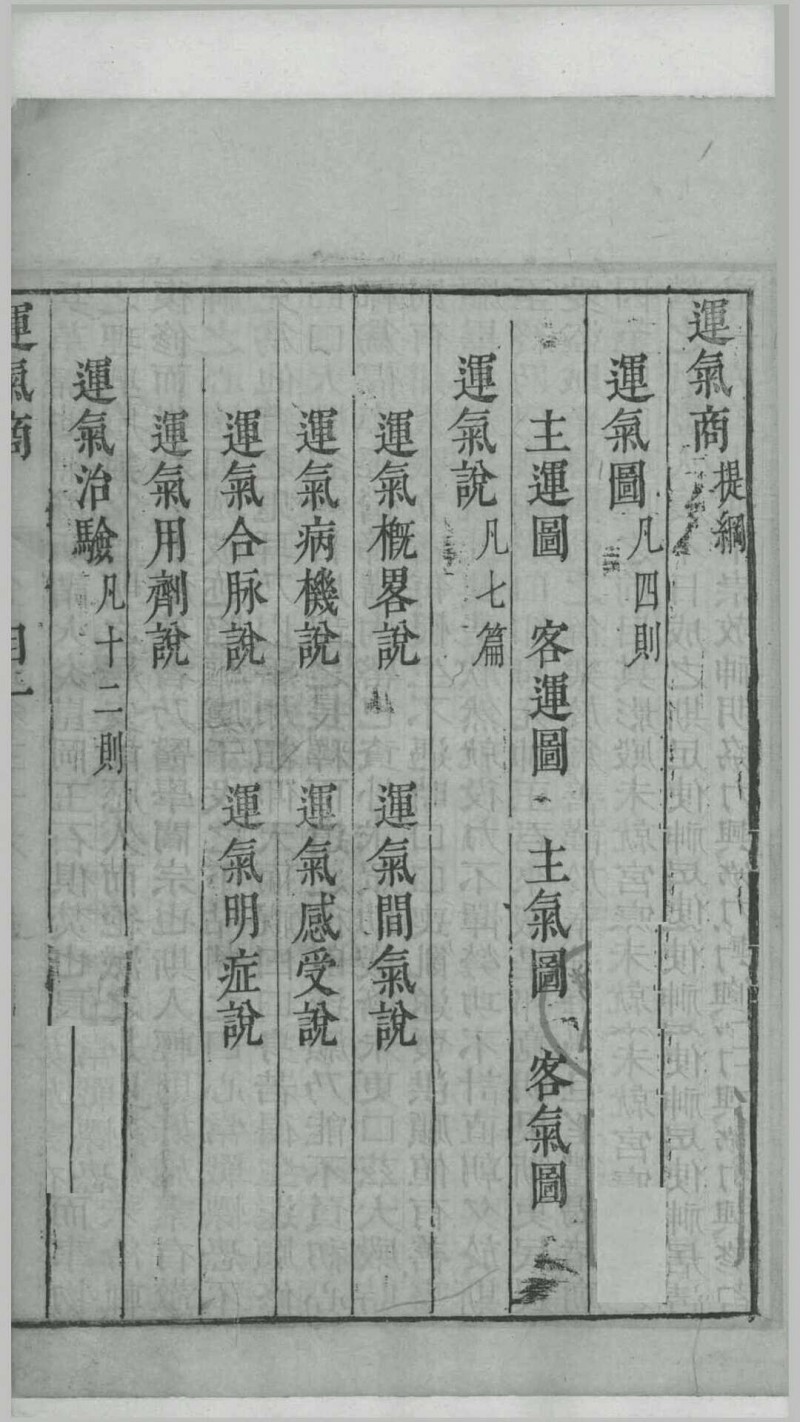 運氣商提綱
運氣圖凡四則
主運圖　客運圖　主氣圖　客氣圖
運氣說凡七篇
運氣概畧說　運氣間氣說
運氣病機說　運氣感受說
運氣合脉說　運氣明症說
運氣用劑說
運氣治驗凡十二則
運氣商